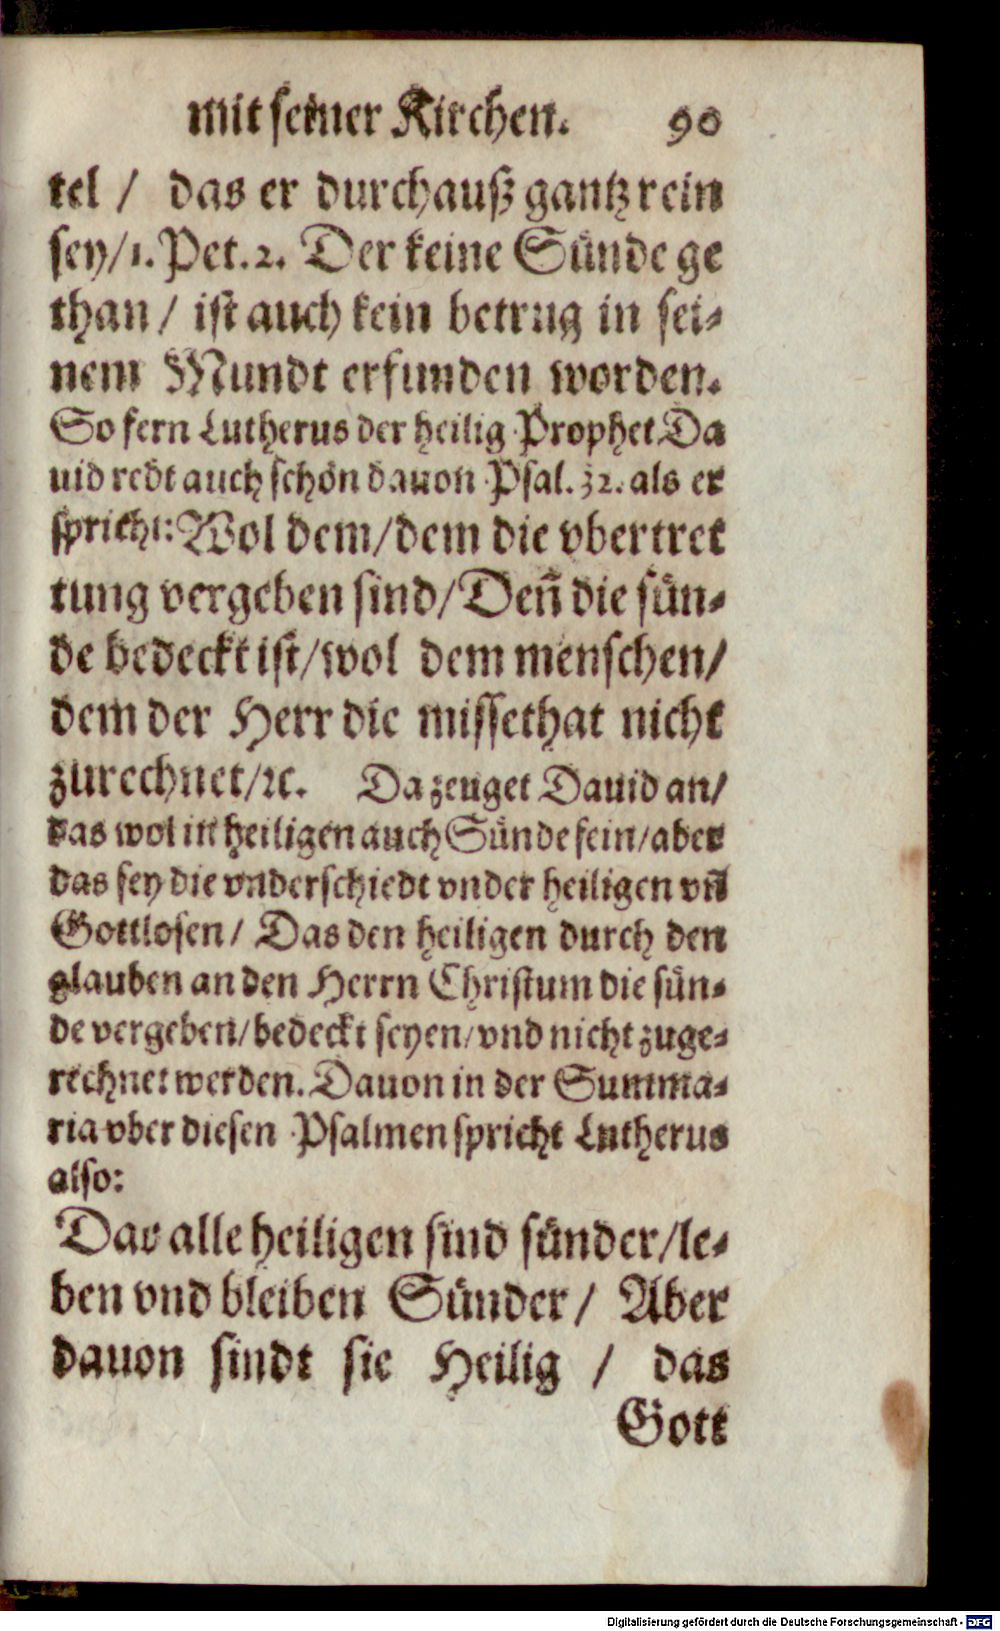 mit seiner Kirchen. 90
tel / das er durchauß gantz rein
sey/1. Pet. 2. Der keine Sünde ge
than / ist auch kein betrug in sei-
nem Mundt erfunden worden.
So fern Lutherus der heilig Prophet Da
uid redt auch schön dauon Psal. 32. als er
spricht: Wol dem/dem die vbertret
tung vergeben sind/Deñ die sün-
de bedeckt ist/wol dem menschen/
dem der Herr die missethat nicht
zurechnet/ꝛc. Da zeuget Dauid an/
das wol in heiligen auch Sünde sein/aber
das sey die vnderschiedt vnder heiligen vñ
Gottlosen/ Das den heiligen durch den
glauben an den Herrn Christum die sün-
de vergeben/bedeckt seyen/vnd nicht zuge-
rechnet werden. Dauon in der Summa-
ria vber diesen Psalmen spricht Lutherus
also:
Das alle heiligen sind sünder/le-
ben vnd bleiben Sünder/ Aber
dauon sindt sie Heilig / das
Gott
Digitalisierung gefördert durch die Deutsche Forschungsgemeinschaft - DFG